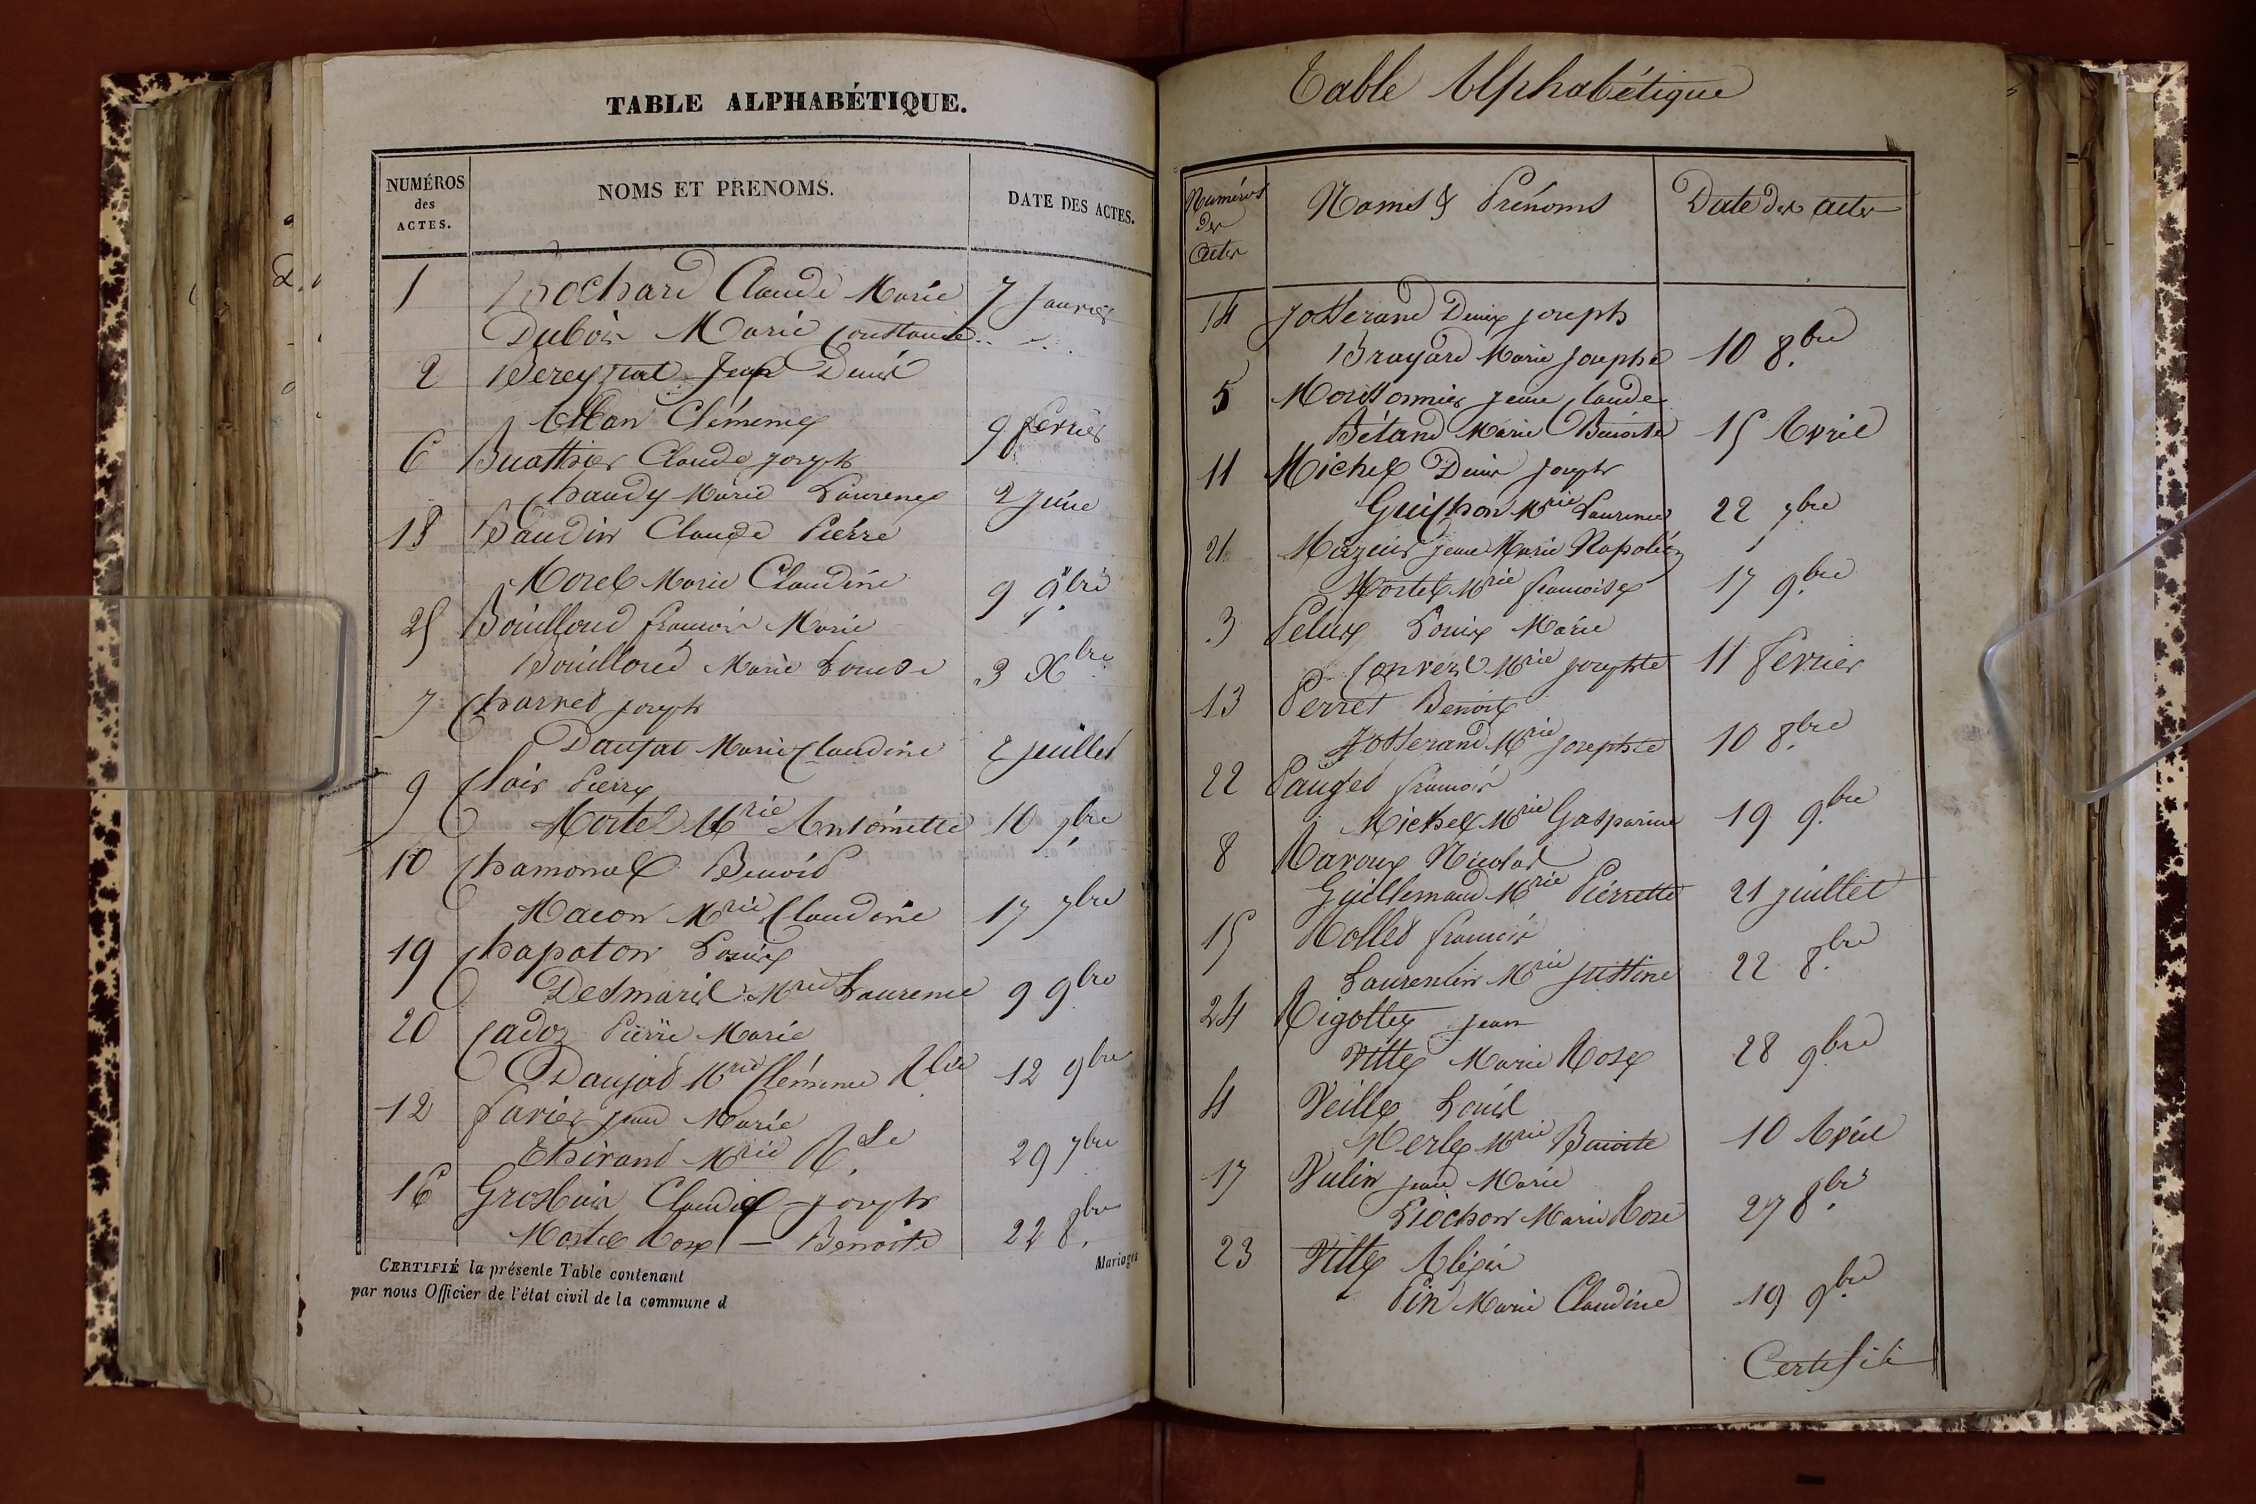 TABLE ALPHABÉTIQUE.
NUMÉROS des ACTES.
NOMS ET PRENOMS.
DATE DES ACTES.
1 Brochard Claude Marie 7 Janvier
Dubois Marie Constance
2 Bereyziat Denis
Clémence 9 février
6 Buathier Claude joseph
Chaudy Marie Laurence 2 Juin
18 Baudin Claude Pierre
Morel Marie Claudine 9 9bre
25 Bouilloud françois Marie
Bouilloud Marie Louise 3 Xbre
7 Charvet joseph
Daujat Marie Claudine 2 juillet
9 Clair Pierre
Mortel Mrie Antoinette 10 7bre
10 Chamonal Benoit
Macon Mrie Claudine 17 7bre
19 Chapaton Louis
Desmaris Mrie Laurence 9 9bre
20 Cadoz Pierre Marie
Daujat Mrie Clémence 12 9bre
12 favier jean Marie
Thivand Mrie 29 7bre
16 Grosbuis Claude joseph
Mortel Rose — Benoite 22 8bre
CERTIFIÉ la présente Table contenant
Mariages
par nous Officier de l'état civil de la commune d
Table Alphabétique
Numéros Des Actes
Noms & Prénoms
Date des actes
14 Josserand Denis joseph
Brayard Marie josephe 10 8bre
5 Moissonnier jean Claude
Bétand Marie Benoite 15 Avril
11 Michel Denis joseph
Guichon Mrie Laurence 22 7bre
21 Mazuir jean Marie Napoléon
Mortel Mrie françoise 17 9bre
3 Pelux Louis Marie
Convert Mrie josephte 11 fevrier
13 Perret Benoit
Josserand Mrie josephte 10 8bre
22 Pauget françois
Michel Mrie Gasparine 19 9bre
8 Ravoux Nicolas
Guillemaud Mrie Pierrette 21 juillet
15 Rollet françois
Laurentin Mrie justine 22 8bre
24 Rigottex jean
Vitte Marie Rose 28 9bre
4 Veille Louis
Merle Mrie Benoite 10 Avril
17 Vulin jean Marie
Piochon Marie Rose 27 8bre
23 Vitte Alexis
Pin Marie Claudine 19 9bre
Certifié